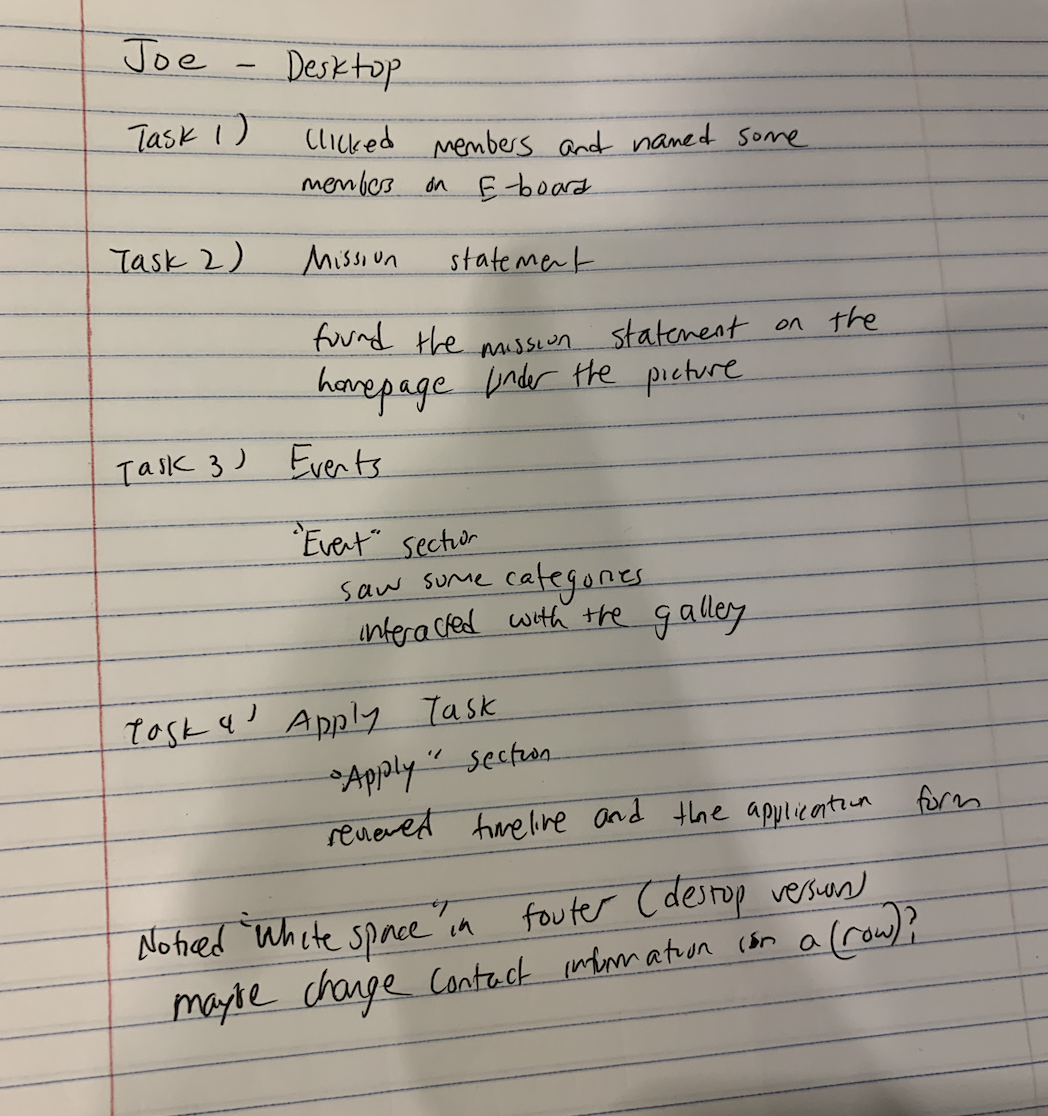 Joe - Desktop
Task 1) Clicked members and named some
members on E-board
Task 2) Mission statement
found the mission statement on the
homepage under the picture
Task 3) Events
"Event" section
saw some categories
interacted with the gallery
Task 4) Apply Task
"Apply" section
reviewed timeline and the application form
Noticed "White space" in footer (destop version)
maybe change contact information in a (row)?